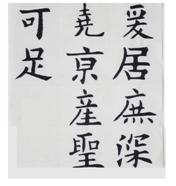 爰居庶深
堯京産聖
可足